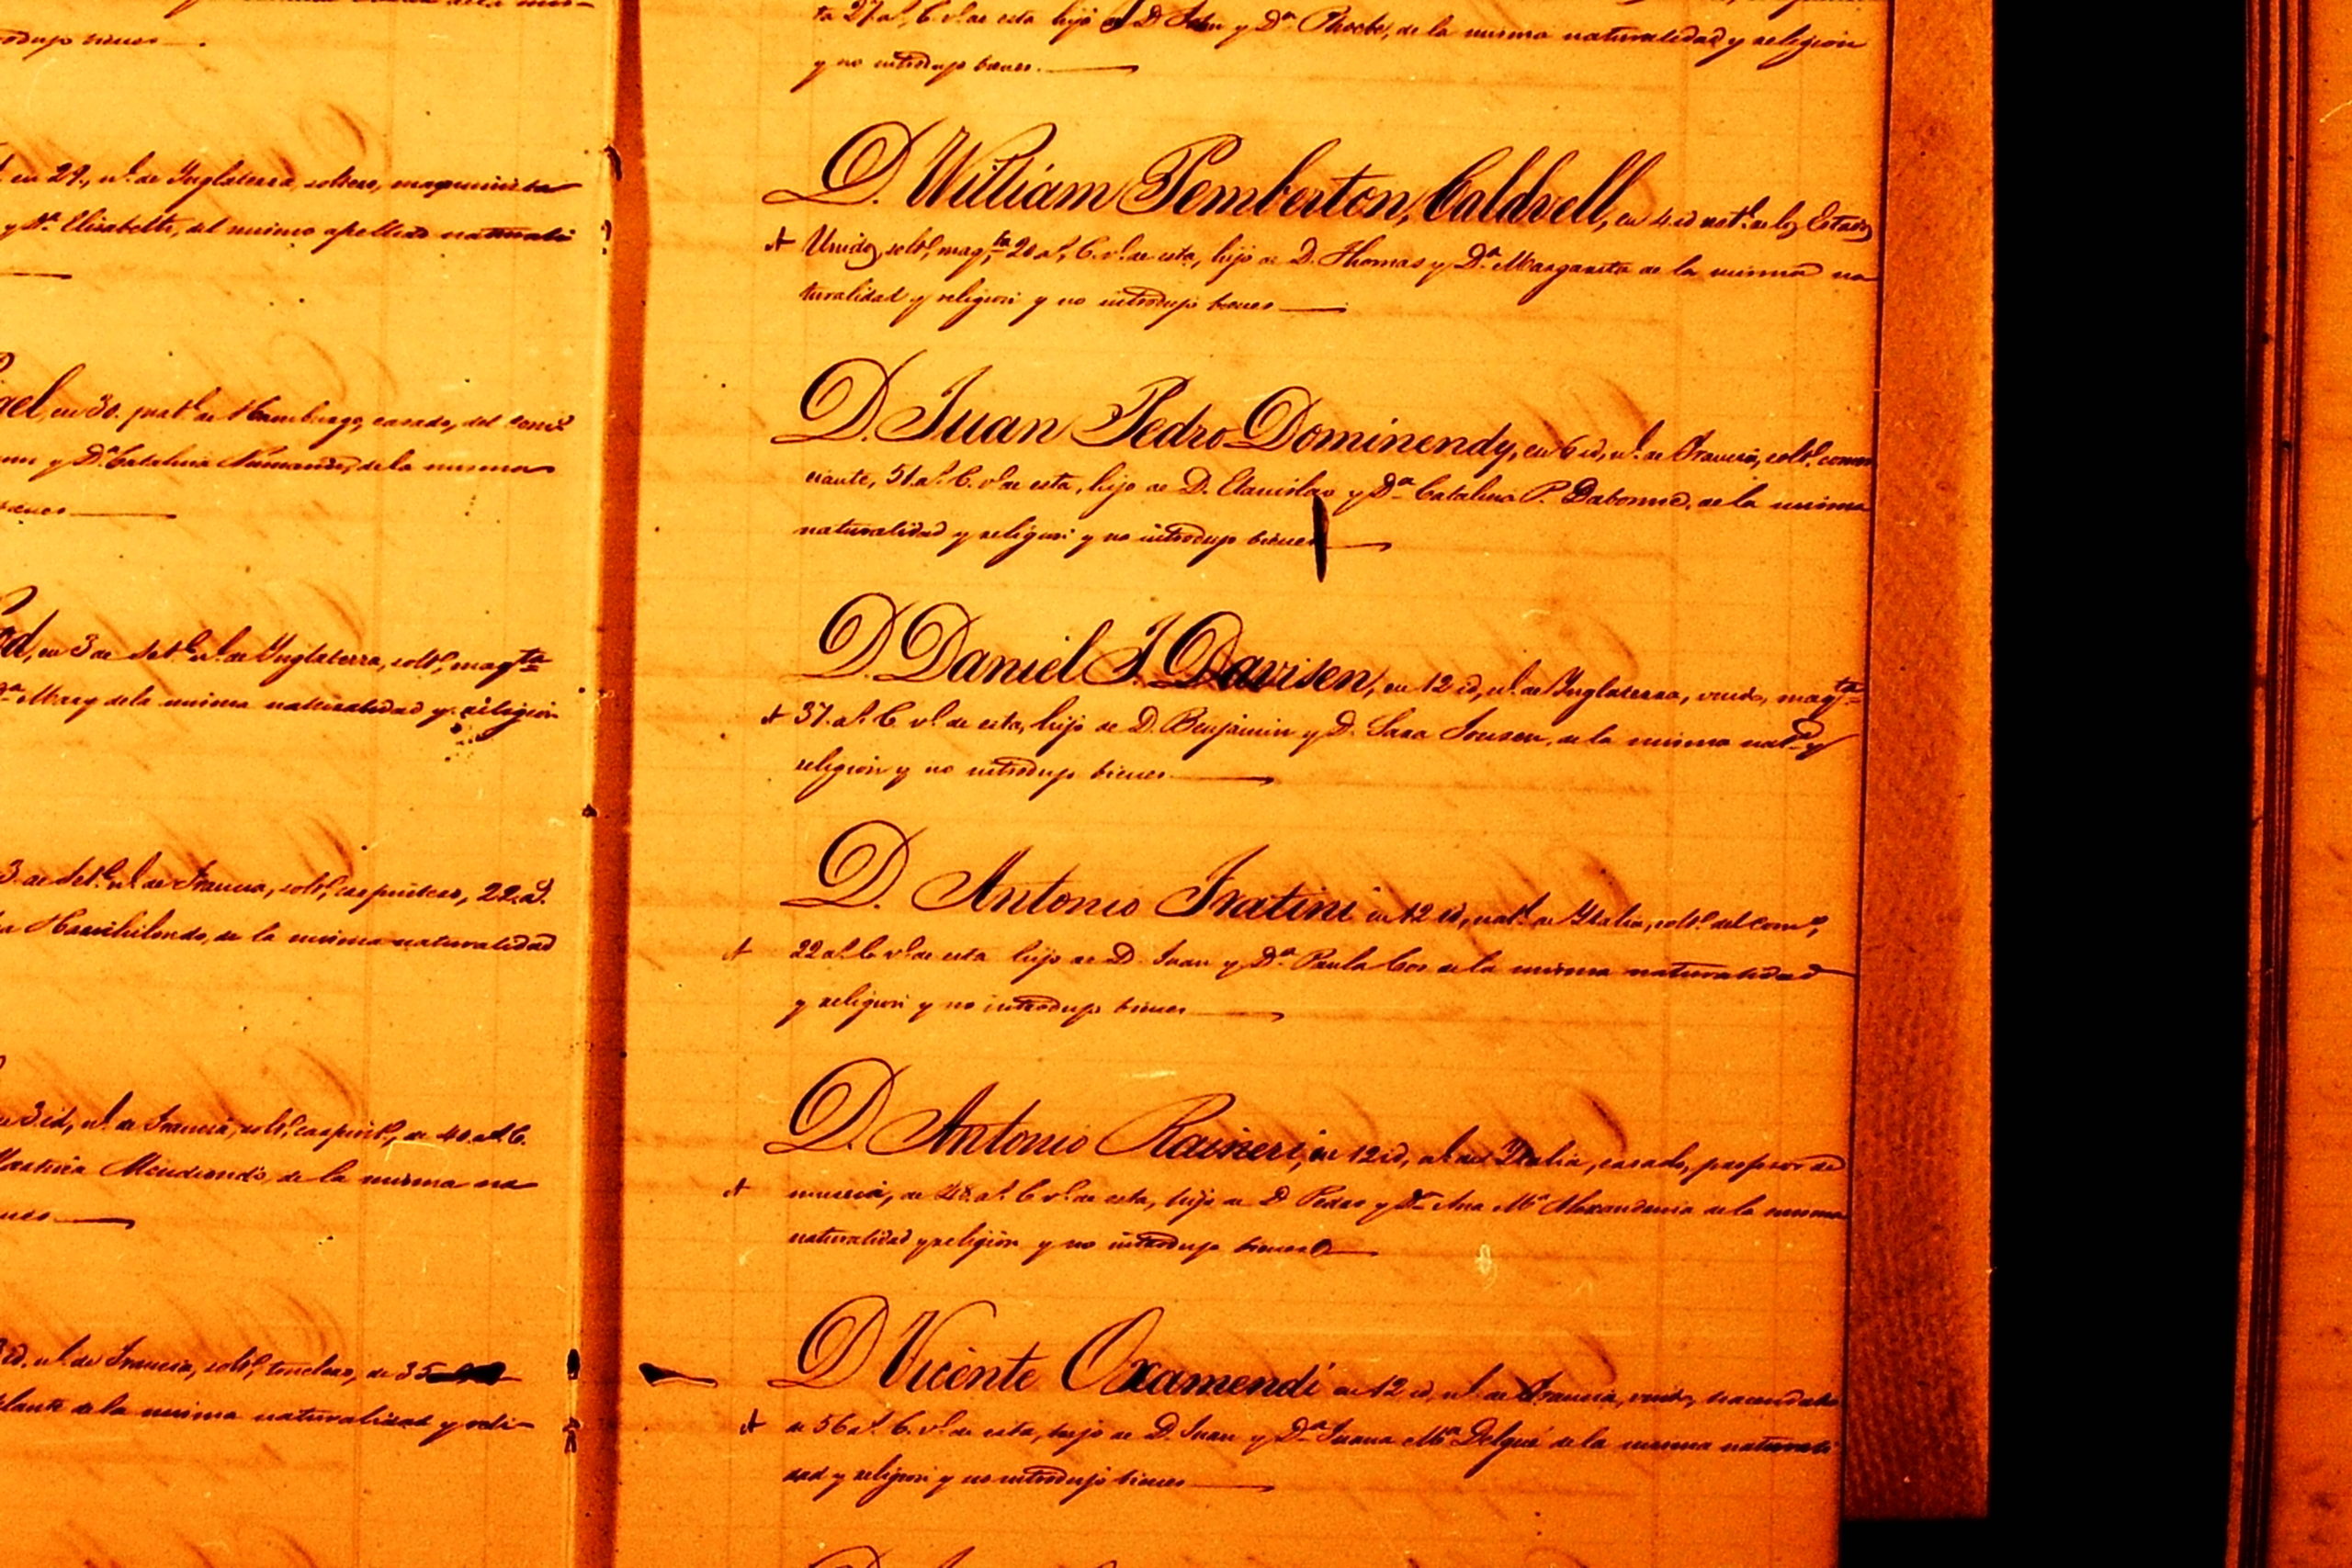 rodujo bienes
en 29, n.l de Inglaterra, soltero, maquinista
y D.a Elisabeth, del mismo apellido naturali
gel, en 30. nat.l de Hamburgo, casado, del com.o
y D.a Catalina de la misma
bienes
d, en 3 de Set.e n.l de Inglaterra, solt.o maq.ta
D.a Mary de la misma naturalidad y religion
3. de Set.e n.l de Francia, solt.o carpintero, 22 a.s
de la misma naturalidad
3 id, n.l de Francia, solt.o carpint.o, de 40 a.s C.
de la misma na
id, n.l de Francia, solt.o tonelero, de 35
de la misma naturalidad y reli-
ta 27 a.s, C. v.o de esta hijo de D. John y D.a Phoebe, de la misma naturalidad y religion
y no introdujo bienes.
D. William Pemberton, Caldwell, en 4 id nat.l de los Estados
A Unidos, solt.o, maq.ta 20 a.s, C. v.o de esta, hijo de D. Thomas y D.a Margarita de la misma na
turalidad y religion y no introdujo bienes
D. Juan Pedro Dominendy, en 6 id, n.l de Francia, solt.o comer
ciante, 51 a.s C. v.o de esta, hijo de D. Stanislao y D.a Catalina P. de la misma
naturalidad y religion y no introdujo bienes
D. Daniel J. Davisen, en 12 id, n.l de Inglaterra, viudo, maq.ta
A 37. a.s C v.o de esta, hijo de D. Benjamin y D. Sara Jonsen, de la misma nat.d y
religion y no introdujo bienes
D. Antonio Fratini en 12 id, nat.l de Italia, solt.o del com.o,
A 22 a.s C v.o de esta hijo de D. Juan y D.a Paula Cos de la misma naturalidad
y religion y no introdujo bienes
D. Antonio Raineri, en 12 id, n.l de Italia, casado, profesor de
A musica, de 48 a.s C v.o de esta, hijo de D Pedro y D.a Ana M.a Alexandrina de la misma
naturalidad y religion y no introdujo bienes
D Vicente Oxamendi en 12 id, n.l de Francia, viudo, hacendado
A de 56 a.s C. v.o de esta, hijo de D. Juan y D.a Juana M.a Delgué de la misma naturali
dad y religion y no introdujo bienes